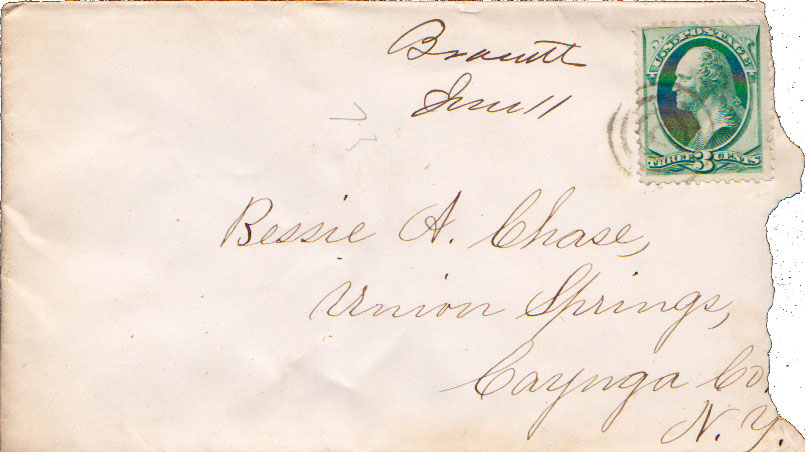 U.S. POSTAGE
THREE 3 CENTS
Bessie A. Chase,
Union Springs,
Cayuga Co.
N. Y.